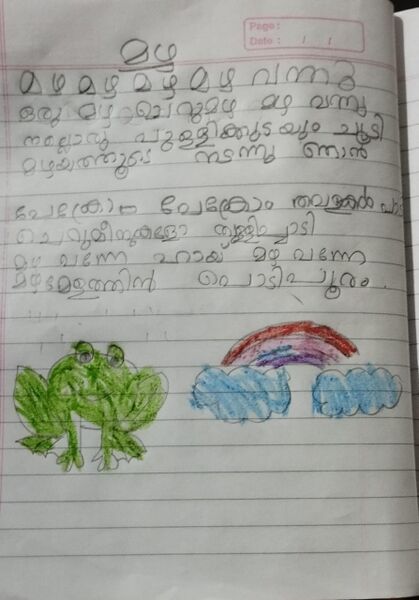 Page:
Date: / /
മഴ
മഴ മഴ മഴ മഴ വന്നു
ഒരു മഴ ചെറുമഴ മഴ വന്നു
നല്ലൊരു പുള്ളിക്കുടയും ചൂടി
മഴയത്തൂടെ നടന്നു ഞാൻ
പേക്രോം പേക്രോം തവളകൾ പാടി
ചെറുമീനുകളോ തുള്ളിച്ചാടി
മഴ വന്നേ ഹായ് മഴ വന്നേ
മഴമേളത്തിൻ പൊടിപൂരം.